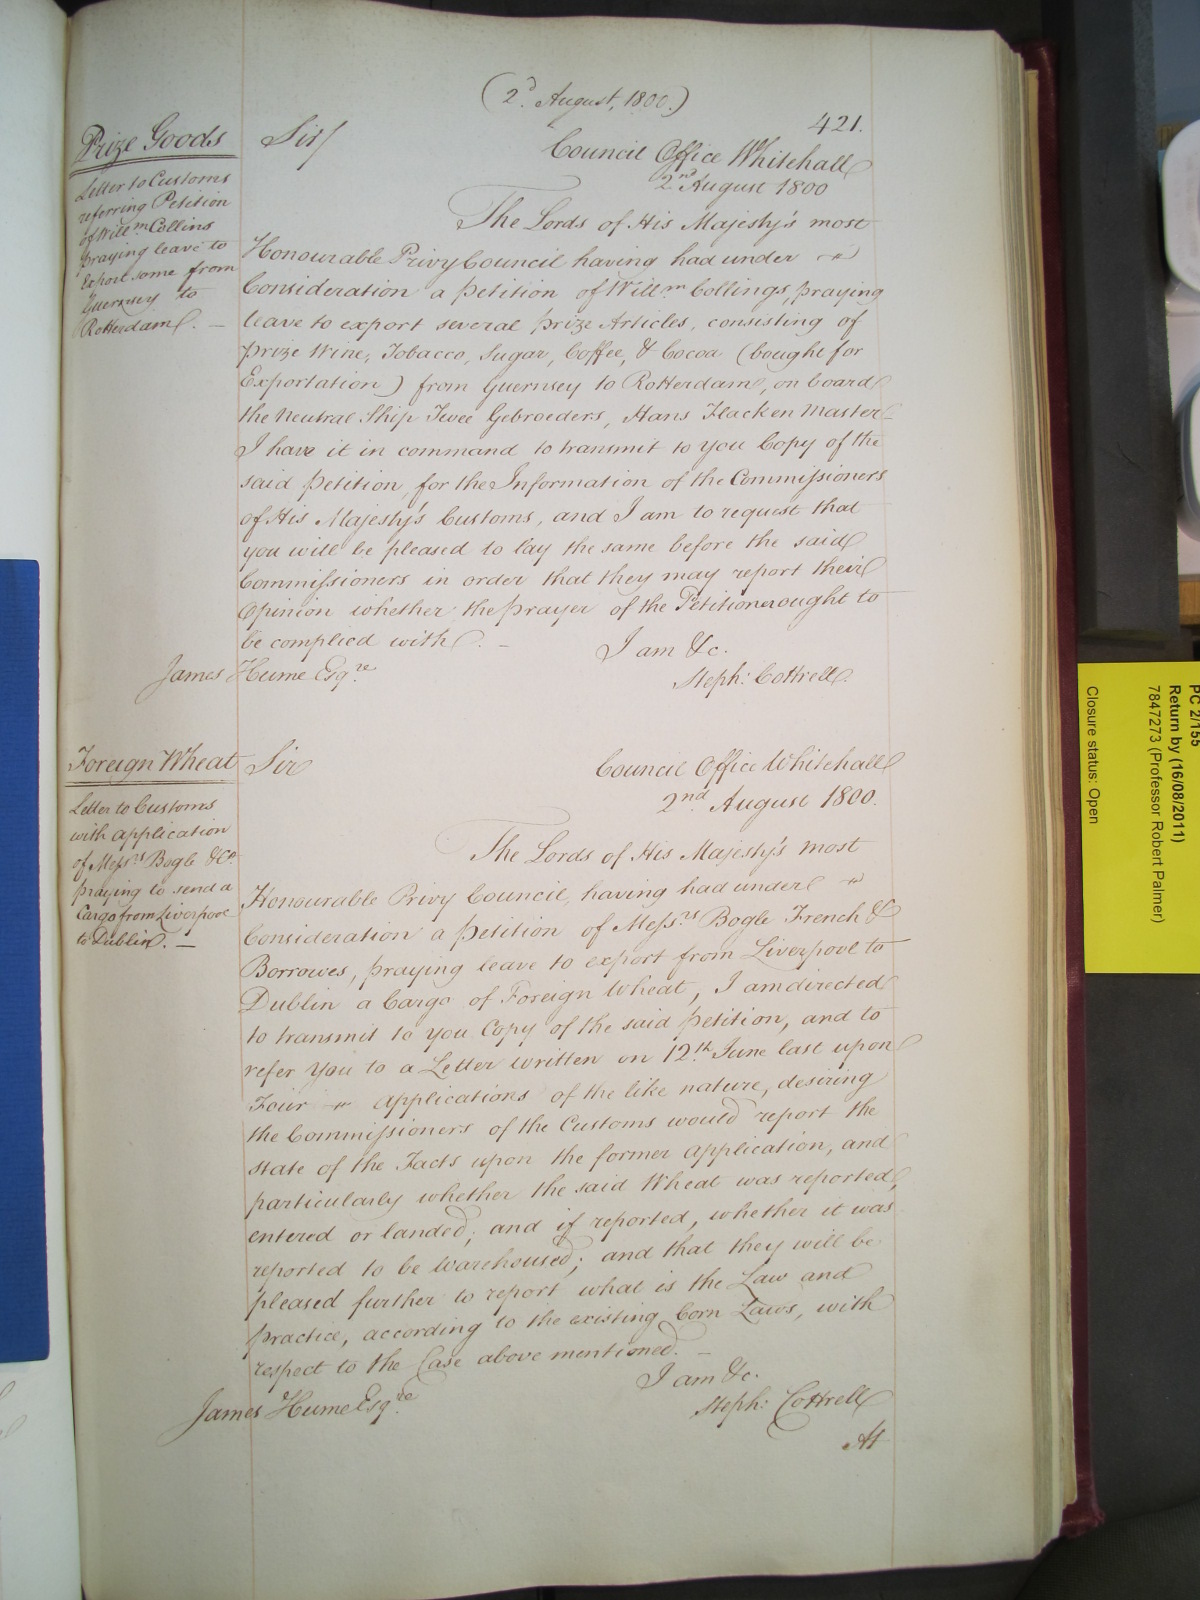 (2d. August, 1800.)
421.
Prize Goods
Letter to Customs
referring Petition
of Willm Collins
praying leave to
Export some from
Guernsey to
Rotterdam. —
Sir/
Council Office Whitehall
2nd August 1800
The Lords of His Majesty's most
Honourable Privy Council having had under
Consideration a petition of Willm. Collings, praying
leave to export several prize Articles, consisting of
prize Wine, Tobacco, Sugar, Coffee, & Cocoa (bought for
Exportation) from Guernsey to Rotterdam, on board
the Neutral Ship Twee Gebroeders, Hans Flacken Master
I have it in command to transmit to you Copy of the
said petition, for the Information of the Commissioners
of His Majesty's Customs, and I am to request that
you will be pleased to lay the same before the said
Commissioners in order that they may report their
Opinion whether the prayer of the Petitioner ought to
be complied with. —
I am &c.
James Hume Esqre
Steph: Cottrell.
Foreign Wheat
Letter to Customs
with application
of Messrs Bogle & Co.
praying to send a
Cargo from Liverpool
to Dublin. —
Sir
Council Office Whitehall
2nd August 1800.
The Lords of His Majesty's most
Honourable Privy Council, having had under
Consideration a petition of Messrs. Bogle French &
Borrowes, praying leave to export from Liverpool to
Dublin a Cargo of Foreign Wheat, I am directed
to transmit to you Copy of the said petition, and to
refer you to a Letter written on 12th June last upon
Four applications of the like nature, desiring
the Commissioners of the Customs would report the
state of the Facts upon the former application, and
particularly whether the said Wheat was reported,
entered or landed; and if reported, whether it was
reported to be warehoused; and that they will be
pleased further to report what is the Law and
practice, according to the existing Corn Laws, with
respect to the Case above mentioned. —
I am &c.
James Hume Esqre.
Steph: Cottrell
At
PC 2/155
Return by (16/08/2011)
7847273 (Professor Robert Palmer)
Closure status: Open